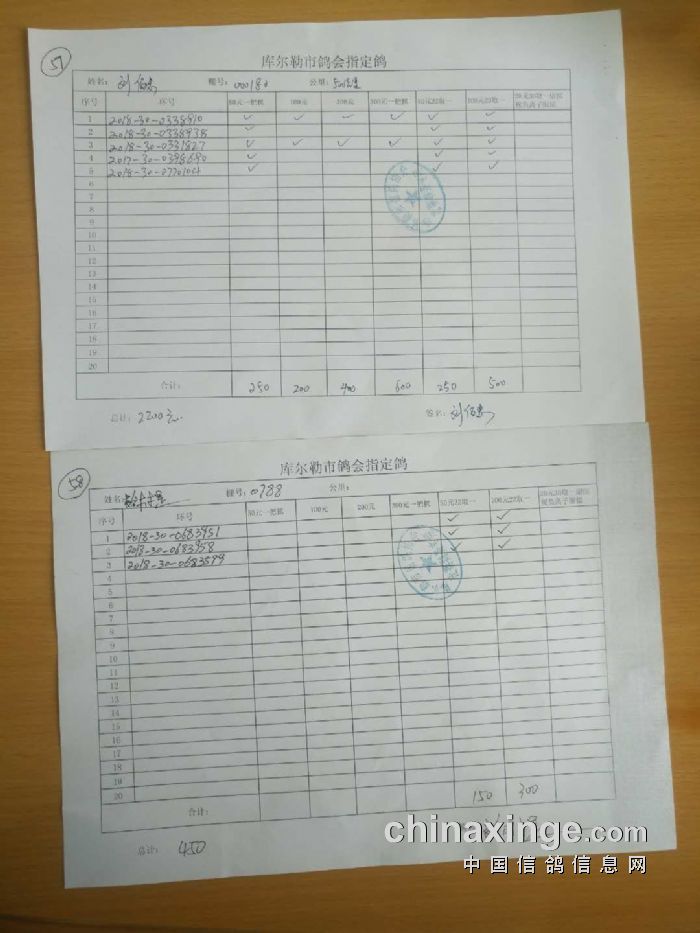 57
库尔勒市鸽会指定鸽
姓名: 刘 棚号: 00018 公里:
序号 序号 50元一把抓 100元 200元 300元一把抓 50元22取一 100元22取一
1 2018-30-0338910 ✓ ✓ ✓ ✓ ✓ ✓
2 2018-30-0338938 ✓ ✓ ✓
3 2018-30-0331827 ✓ ✓ ✓ ✓ ✓ ✓
4 2017-30-0398690 ✓ ✓ ✓
5 2018-30-0770104 ✓ ✓ ✓
6
7
8
9
10
11
12
13
14
15
16
17
18
19
20
合计: 250 200 400 600 250 500
总计: 2200元 签名: 刘
58
库尔勒市鸽会指定鸽
姓名: 棚号: 0788 公里:
序号 序号 50元一把抓 100元 200元 300元一把抓 50元22取一 100元22取一
1 2018-30-0683951 ✓ ✓
2 2018-30-0683958 ✓ ✓
3 2018-30-0683599 ✓ ✓
4
5
6
7
8
9
10
11
12
13
14
15
16
17
18
19
20
合计: 150 300
总计: 450
chinaxinge.com
中国信鸽信息网